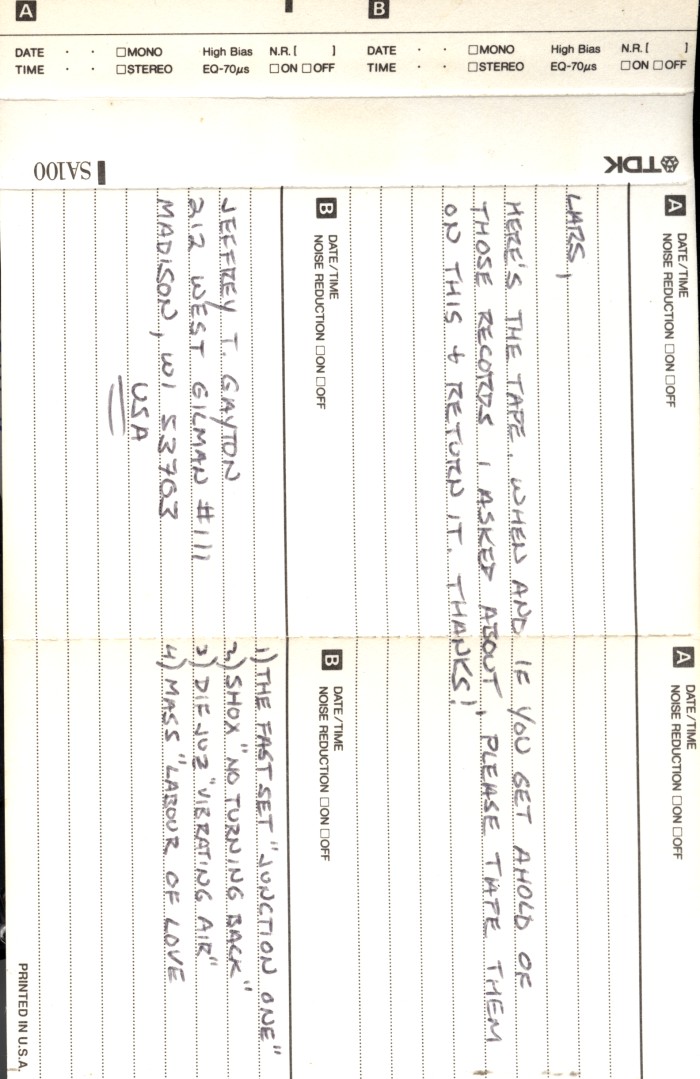 A
B
DATE · · □MONO High Bias N.R. [ ] DATE · · □MONO High Bias N.R. [ ]
TIME · · □STEREO EQ-70µs □ON □OFF TIME · · □STEREO EQ-70µs □ON □OFF
SA100
TDK
A DATE/TIME
NOISE REDUCTION □ON □OFF
A DATE/TIME
NOISE REDUCTION □ON □OFF
LARS,
HERE'S THE TAPE. WHEN AND IF YOU GET AHOLD OF
THOSE RECORDS I ASKED ABOUT, PLEASE TAPE THEM
ON THIS + RETURN IT. THANKS!
B DATE/TIME
NOISE REDUCTION □ON □OFF
JEFFREY T. GAYTON
212 WEST GILMAN #111
MADISON, WI 53703
USA
B DATE/TIME
NOISE REDUCTION □ON □OFF
1) THE FAST SET "JUNCTION ONE"
2) SHOX "NO TURNING BACK"
3) DIF JUZ "VIBRATING AIR"
4) MASS "LABOUR OF LOVE
PRINTED IN U.S.A.